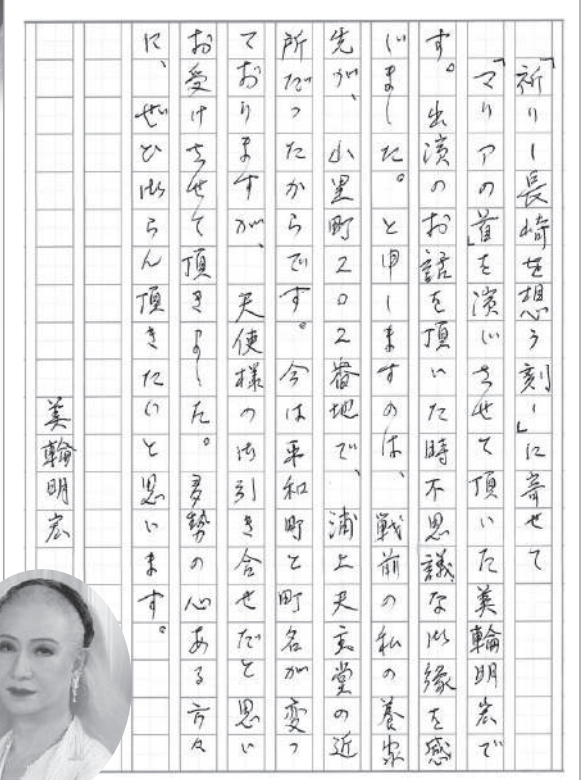 「祈りー長崎を想う刻ー」に寄せて
「マリアの首」を演じさせて頂いた美輪明宏で
す。出演のお話を頂いた時不思議な御縁を感
じました。と申しますのは、戦前の私の養家
先が、山里町202番地で、浦上天主堂の近
所だったからです。今は平和町と町名が変っ
ておりますが、天使様の御引き合せだと思い
お受けさせて頂きました。多勢の心ある方々
に、ぜひ御らん頂きたいと思います。
美輪明宏